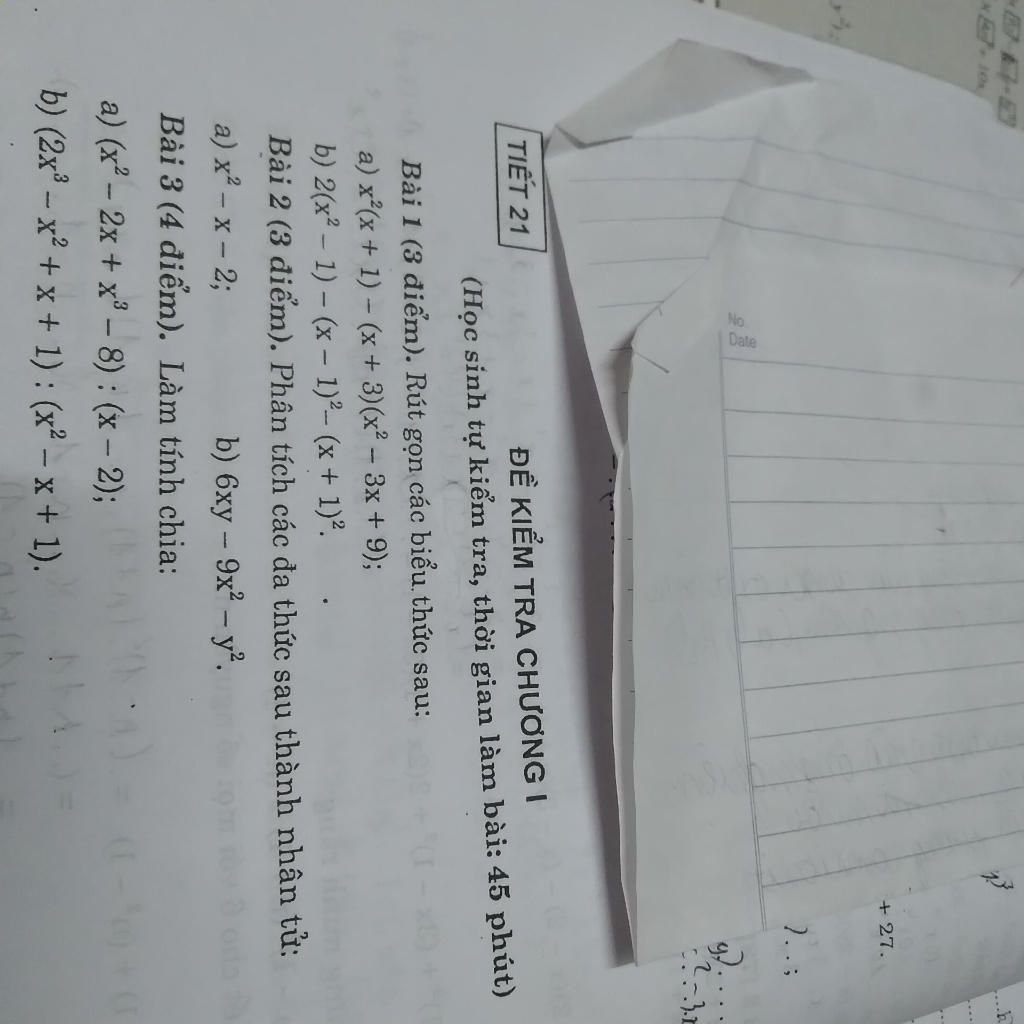 TIẾT 21
ĐỀ KIỂM TRA CHƯƠNG I
(Học sinh tự kiểm tra, thời gian làm bài: 45 phút)
Bài 1 (3 điểm). Rút gọn các biểu thức sau:
a) x²(x + 1) – (x + 3)(x² – 3x + 9);
b) 2(x² – 1) – (x – 1)² – (x + 1)².
Bài 2 (3 điểm). Phân tích các đa thức sau thành nhân tử:
a) x² – x – 2; b) 6xy – 9x² – y².
Bài 3 (4 điểm). Làm tính chia:
a) (x² – 2x + x³ – 8) : (x – 2);
b) (2x³ – x² + x + 1) : (x² – x + 1).
No.
Date
+ 27.